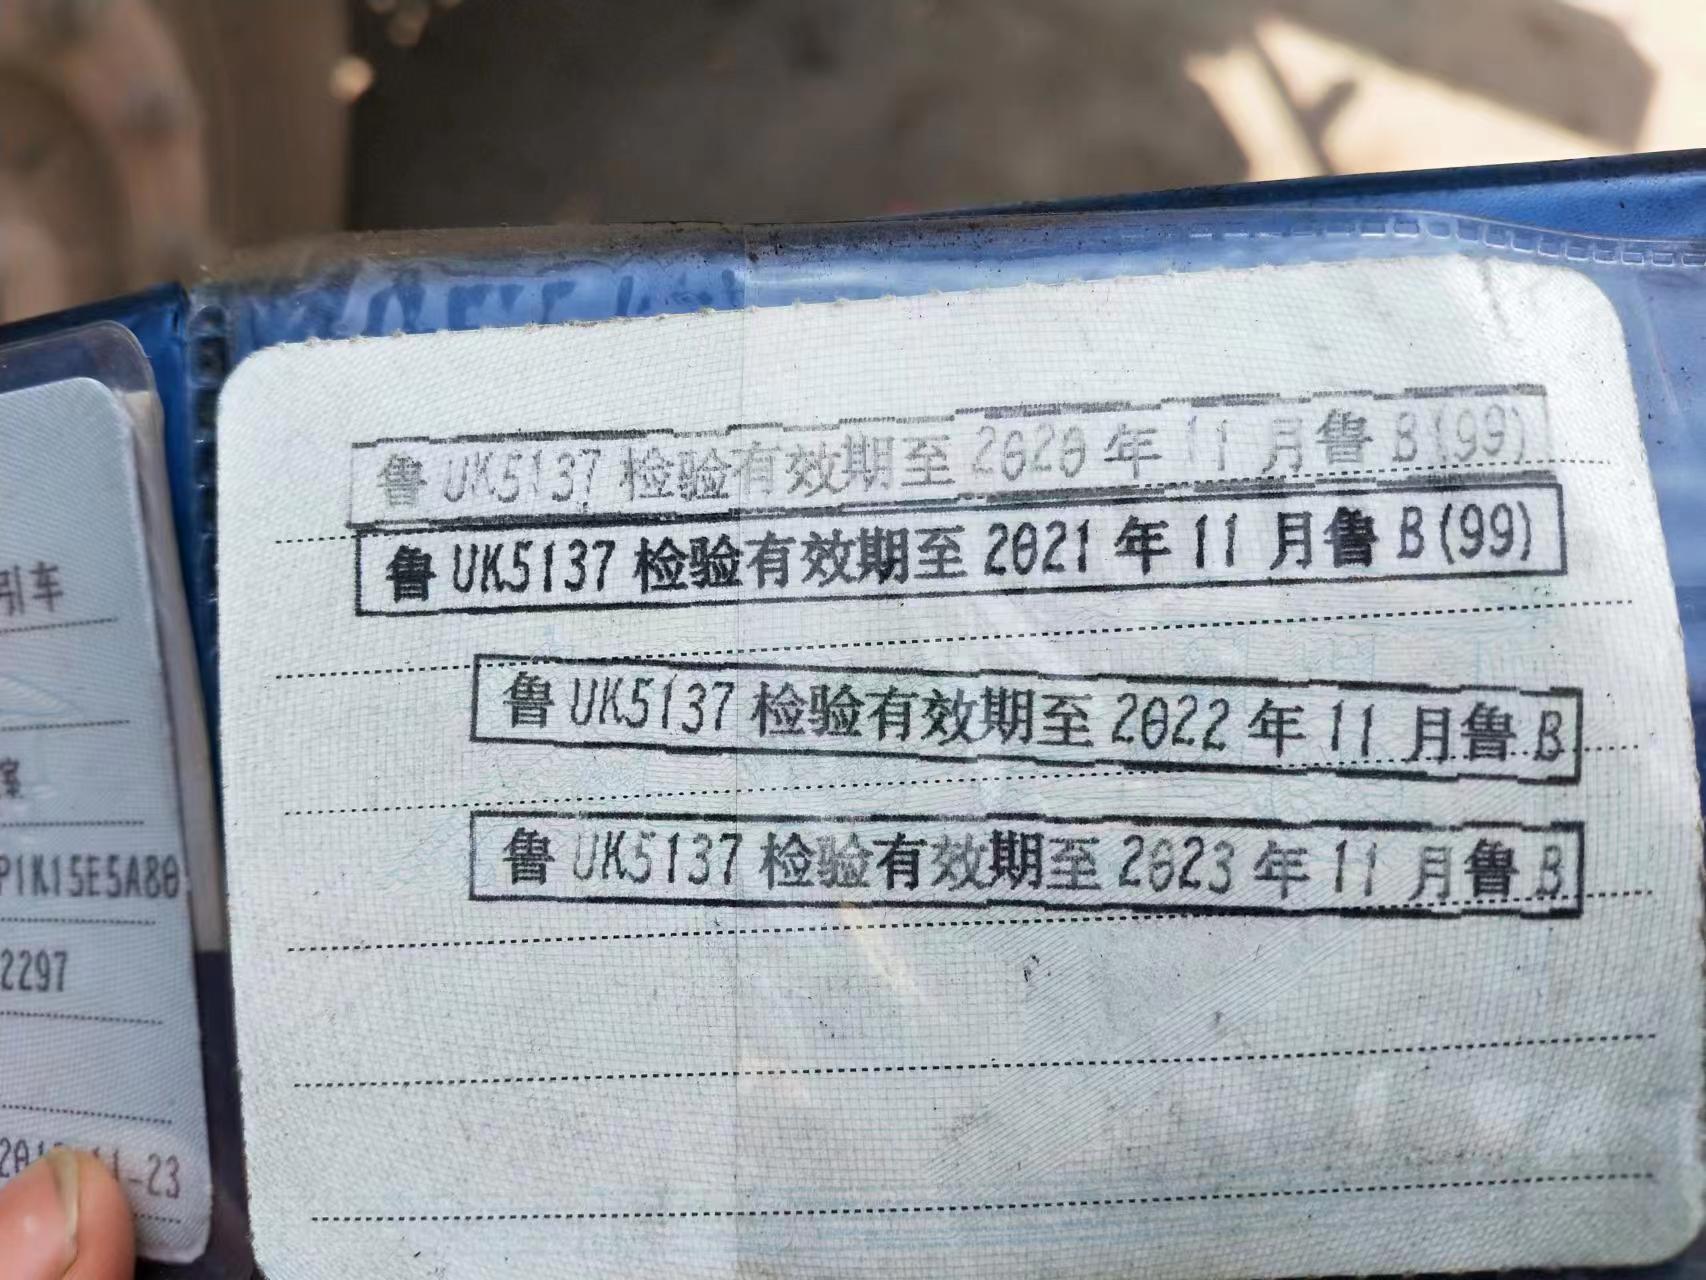 引车
P1K15E5A80
2297
-23
鲁UK5137 检验有效期至2020年11月鲁B(99)
鲁UK5137 检验有效期至2021年11月鲁B(99)
鲁UK5137 检验有效期至2022年11月鲁B
鲁UK5137 检验有效期至2023年11月鲁B